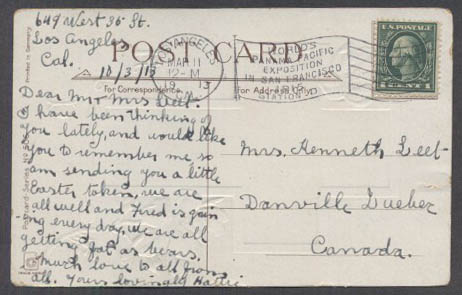 649 West 35 St.
Los Angeles
Cal.
10/3/13
POST CARD
LOS ANGELES
MAR 11
12-M
WORLD'S
PANAMA PACIFIC
EXPOSITION
IN SAN FRANCISCO
1915
STATION D
U.S. POSTAGE
1 CENT 1
For Correspondence
For Address Only
Dear Mr & Mrs Leet.
I have been thinking of
you lately, and would like
you to remember me, so
am sending you a little
Easter token, we are
all well and Fred is gain
ing every day, we are all
getting fat as bears.
Much love to all from
all. Yours lovingly Hattie
Mrs. Kenneth Leet-
Danville Quebec
Canada.
Postcard-Series No.